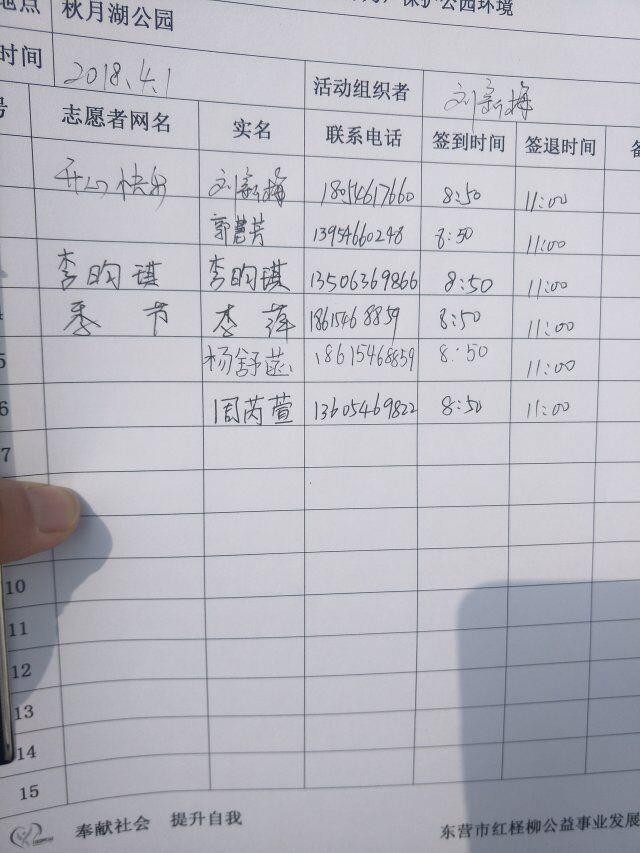 地点 秋月湖公园 保护公园环境
时间 2018.4.1 活动组织者 刘新梅
号 志愿者网名 实名 联系电话 签到时间 签退时间 备
开心快乐 刘新梅 18054617660 8:50 11:00
郭慧芳 13954660248 8:50 11:00
李昀琪 李昀琪 13506369866 8:50 11:00
4 季节 李萍 18615468859 8:50 11:00
5 杨舒 18615468859 8:50 11:00
6 周芮萱 13605469822 8:50 11:00
7
10
11
12
13
14
15
奉献社会 提升自我 东营市红柽柳公益事业发展